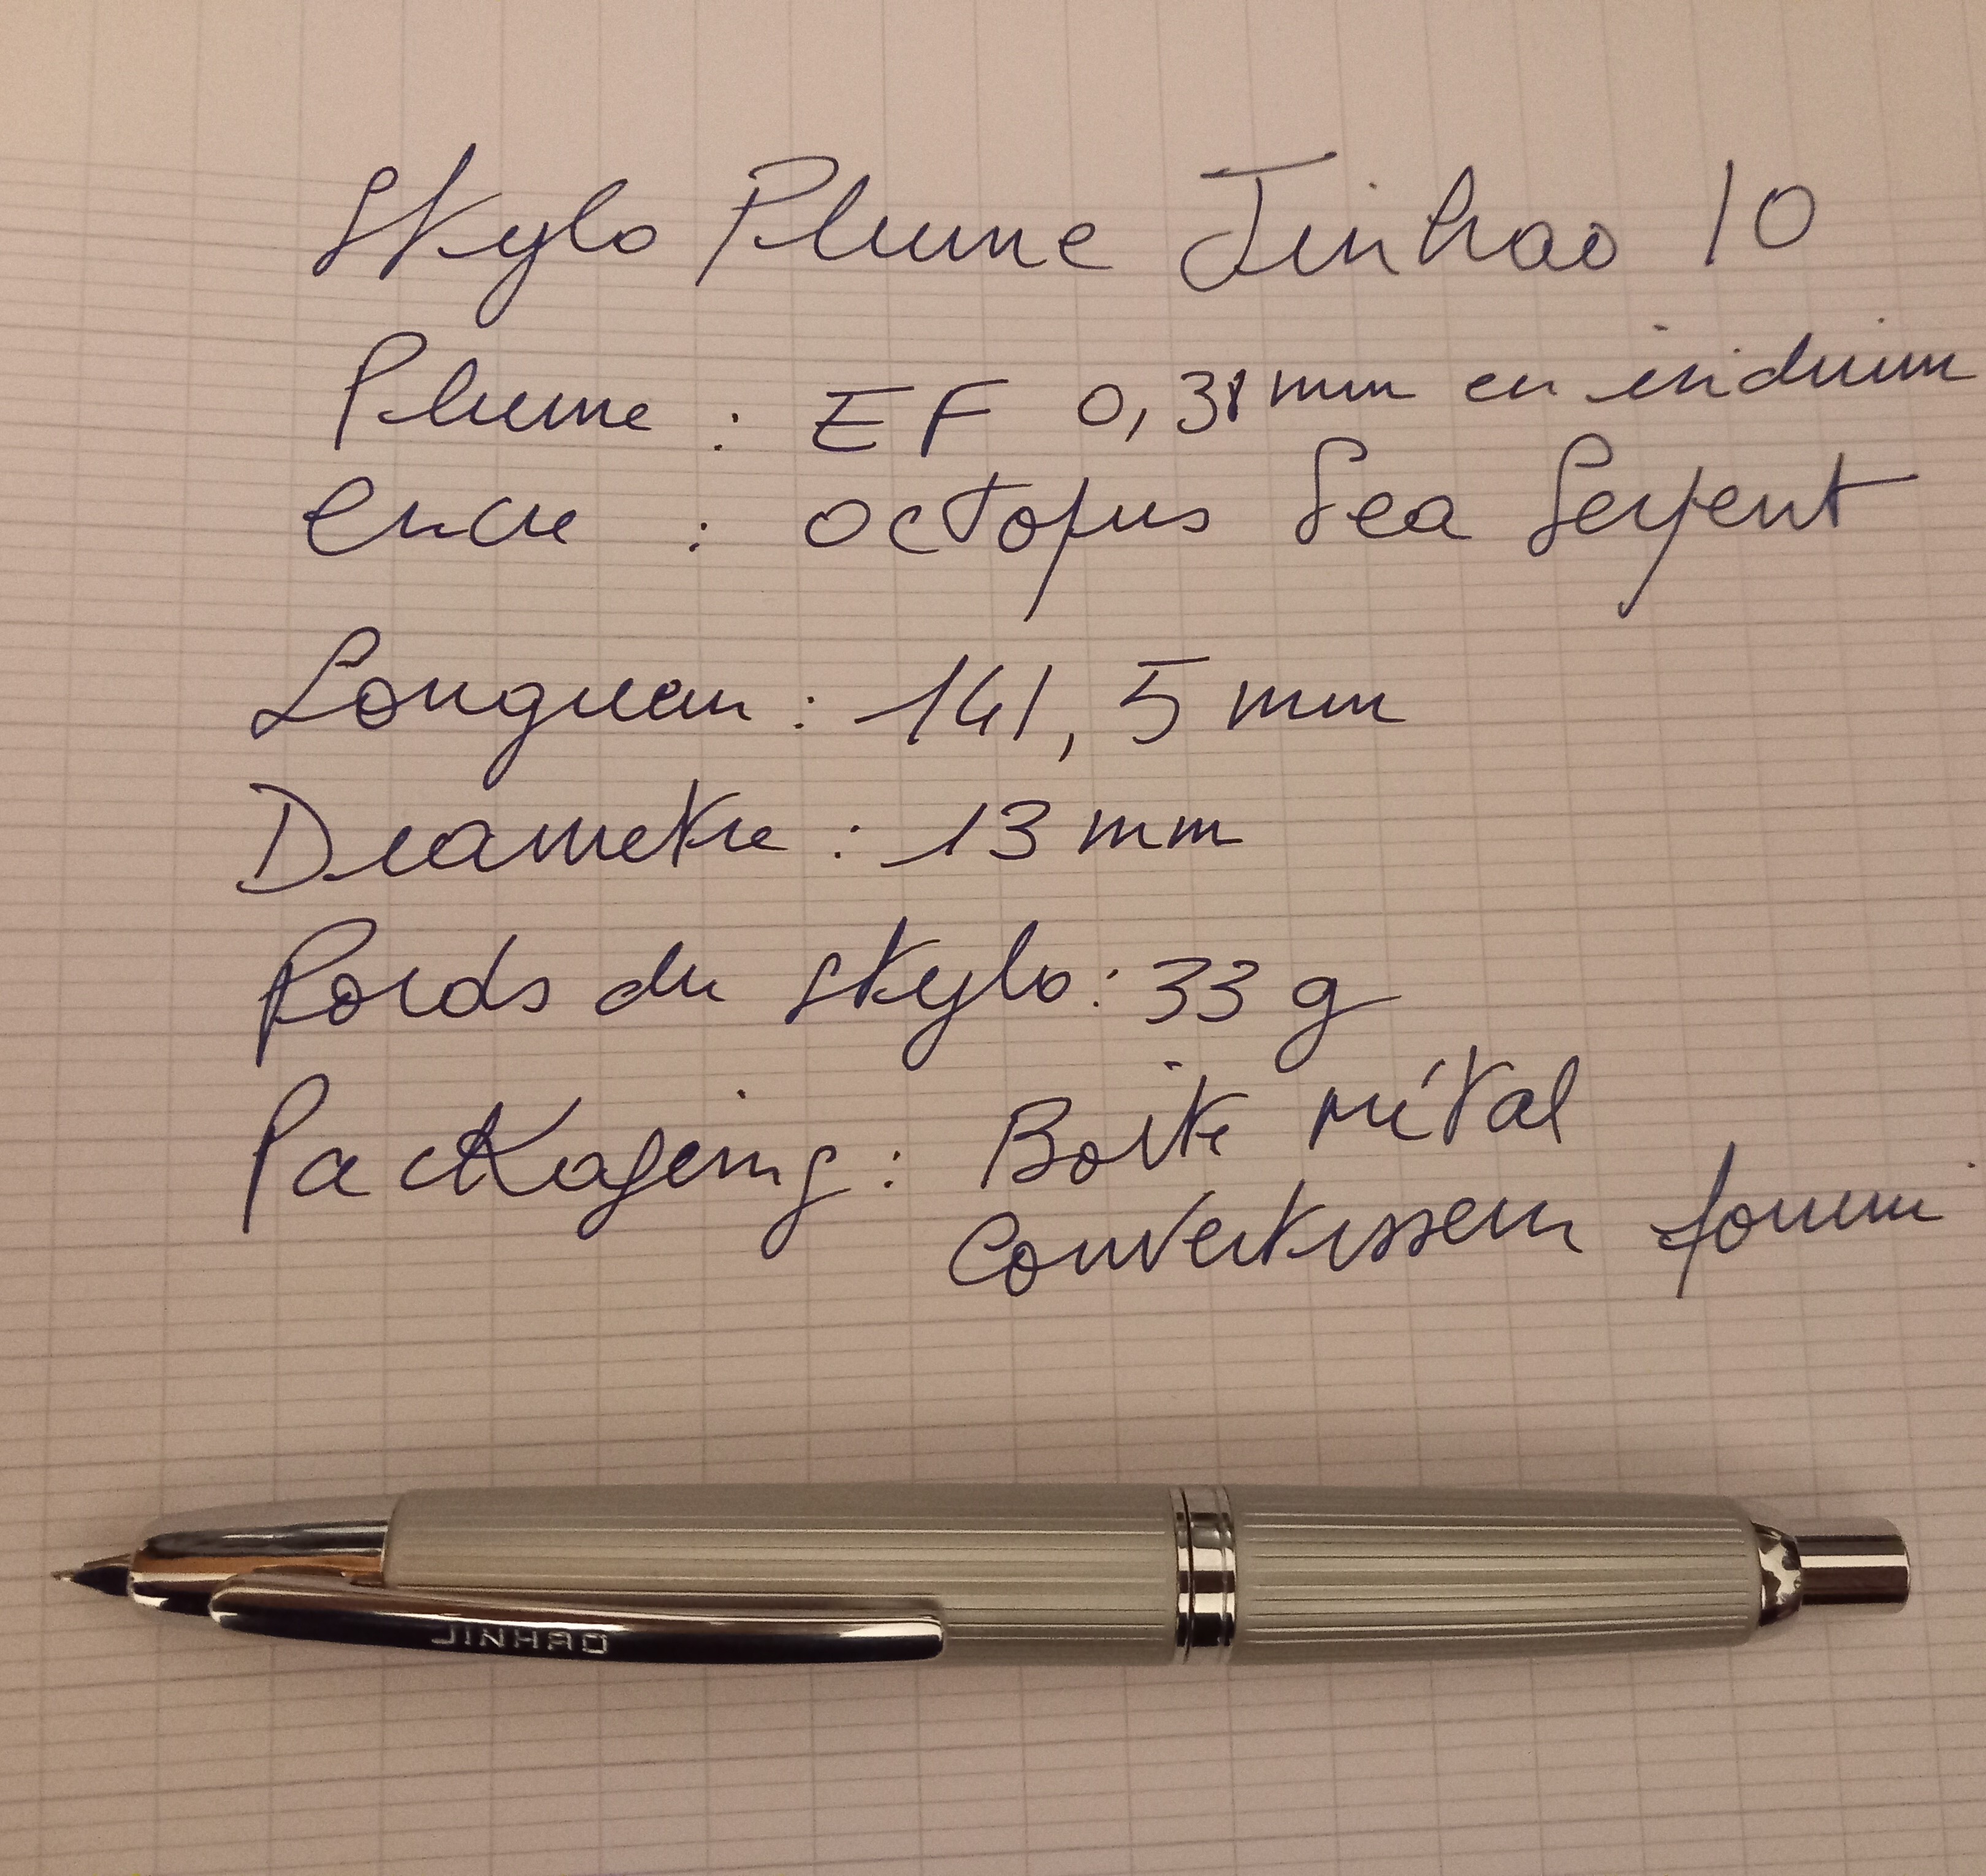 Stylo Plume Jinhao 10
Plume : EF 0,38 mm en iridium
encre : octopus Sea Serpent
Longueur : 141,5 mm
Diametre : 13 mm
Poids du stylo : 33 g
Packageing : Boite métal
Convertisseur fourni
JINHAO